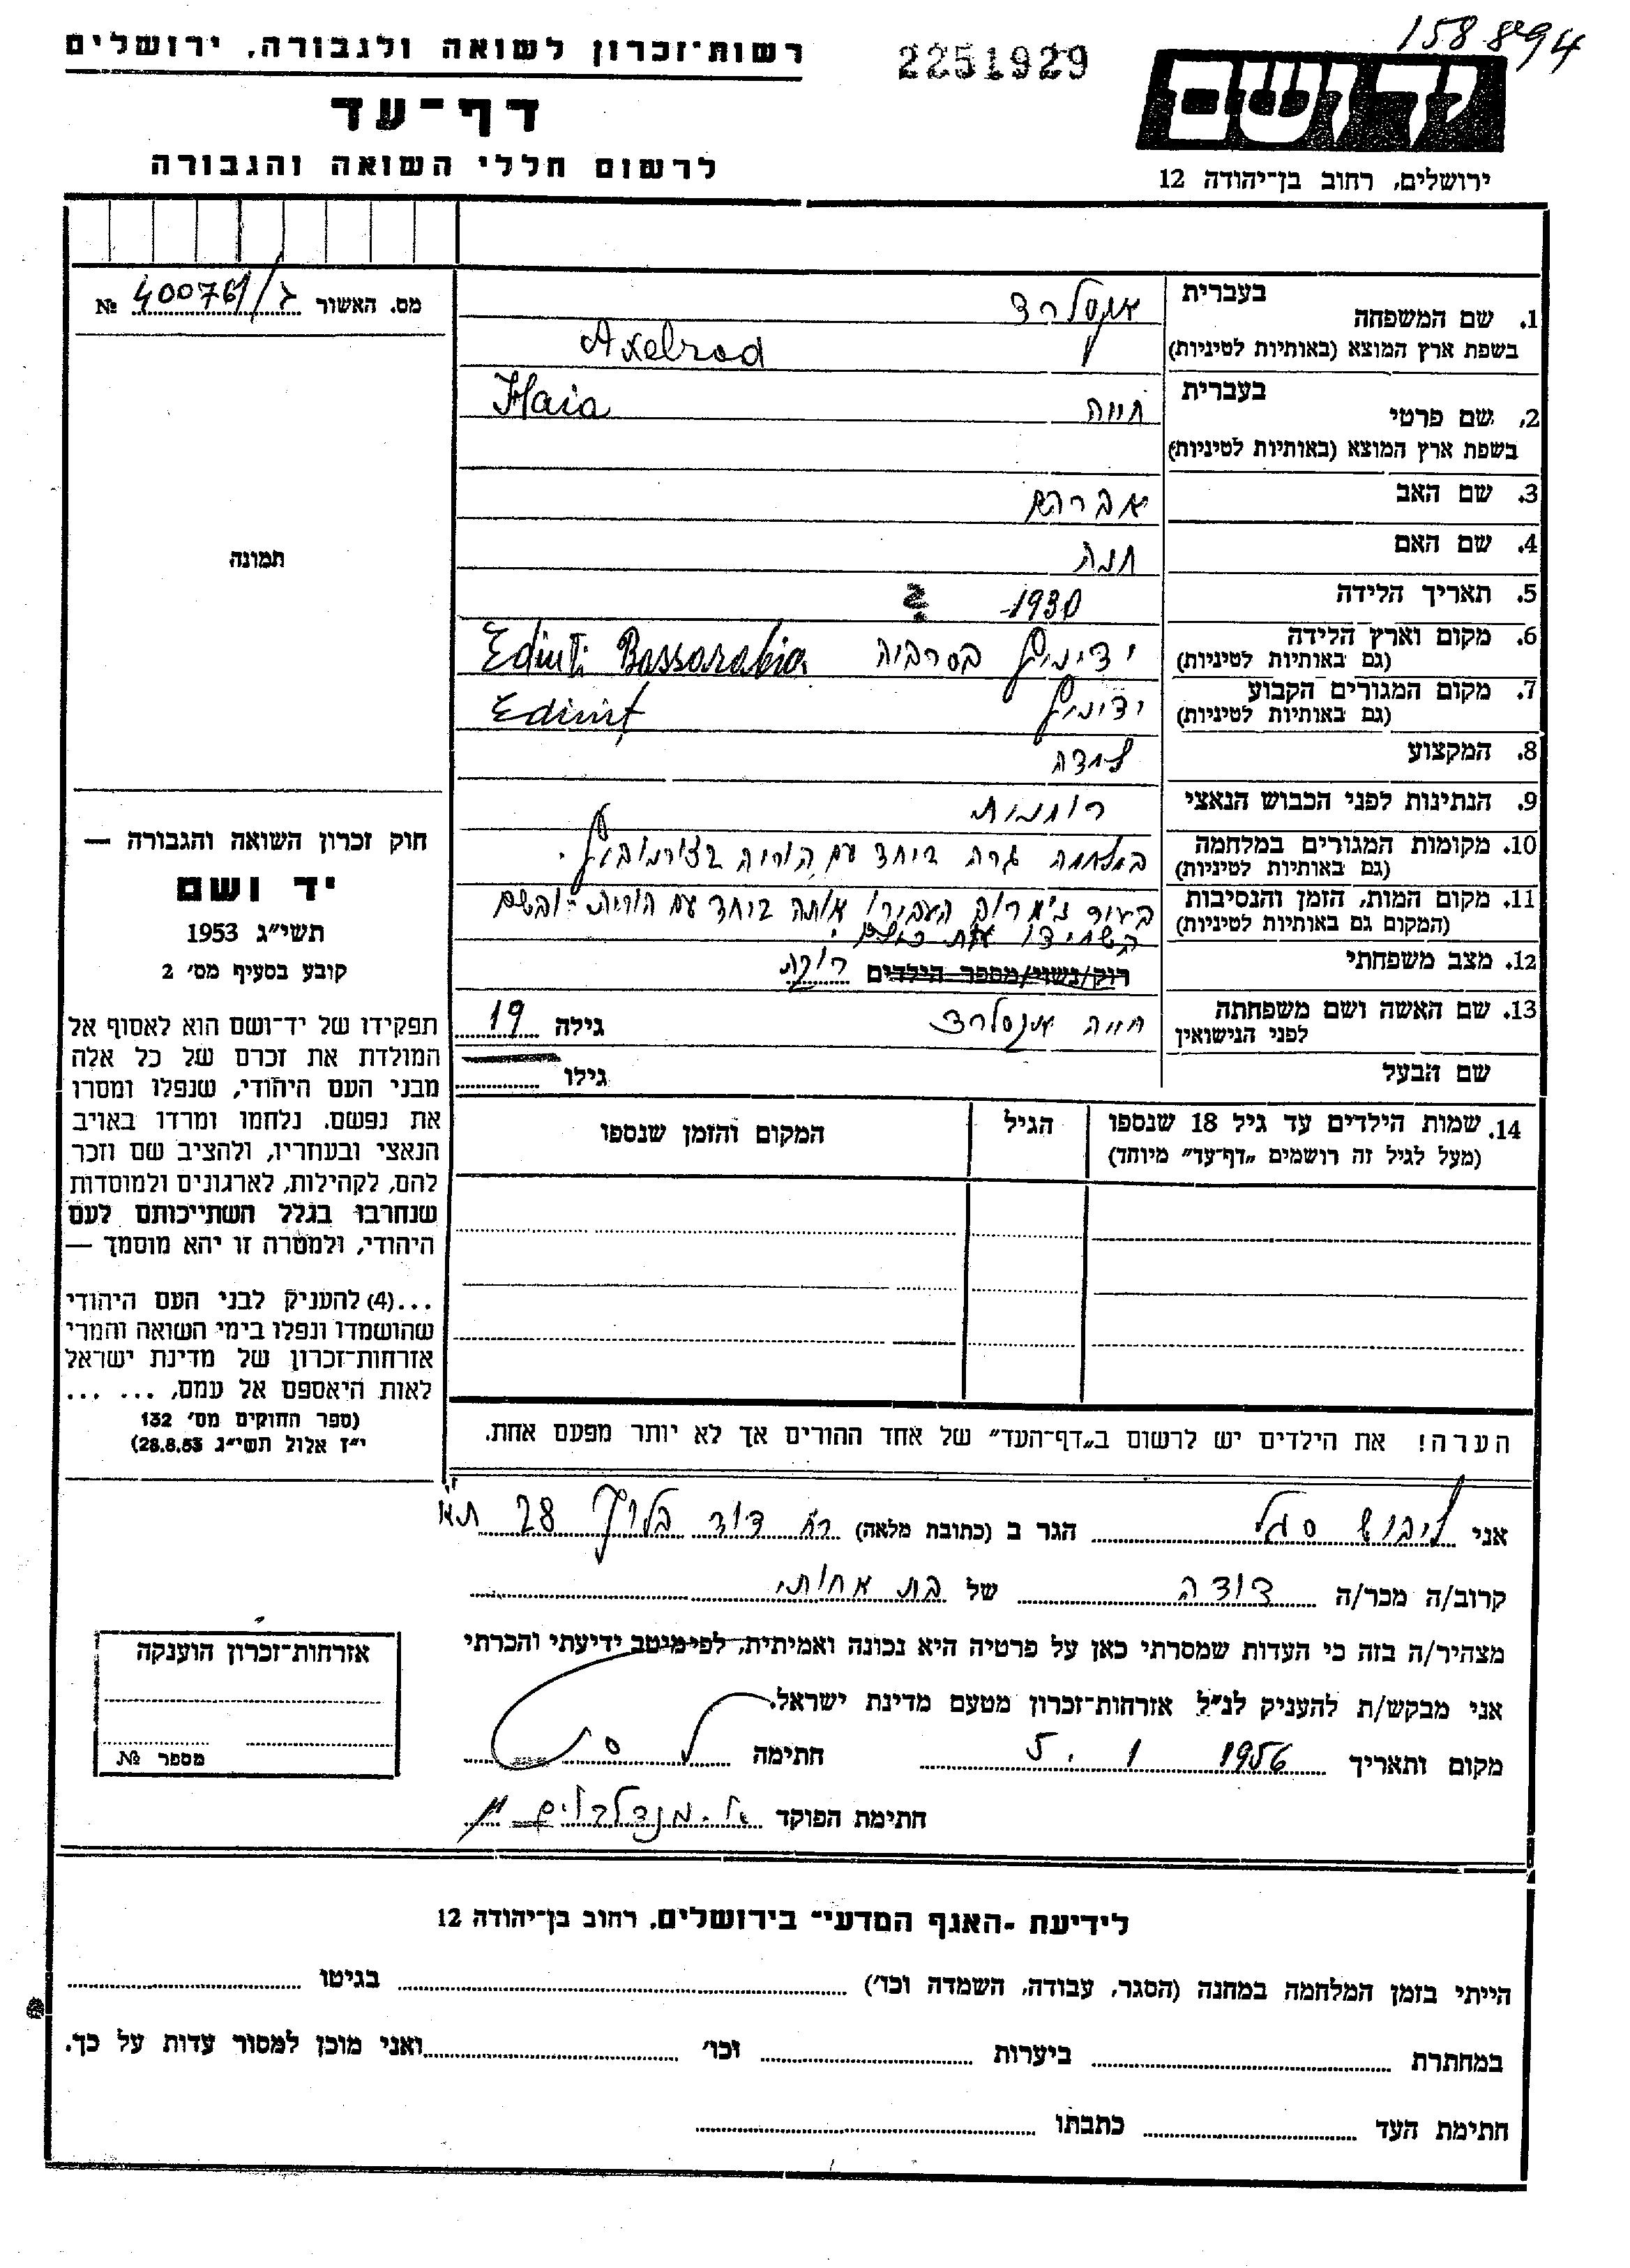 158894
רשות־זכרון לשואה ולגבורה, ירושלים
2251929
יד ושם
דף־עד
לרשום חללי השואה והגבורה
ירושלים, רחוב בן־יהודה 12
מס. האשור 400761/ג №
1. שם המשפחה בעברית אקסלרד
בשפת ארץ המוצא (באותיות לטיניות) Axelrod
2. שם פרטי בעברית חייה Haia
בשפת ארץ המוצא (באותיות לטיניות)
3. שם האב אברהם
4. שם האם חנה
תמונה
5. תאריך הלידה 1930
6. מקום וארץ הלידה ידיניץ בסרביה Edinti Bassarabia
(גם באותיות לטיניות)
7. מקום המגורים הקבוע ידיניץ Edinit
(גם באותיות לטיניות)
8. המקצוע למדה
9. הנתינות לפני הכבוש הנאצי רומנית
10. מקומות המגורים במלחמה במלחמה גרה ביחד עם הוריה
(גם באותיות לטיניות)
11. מקום המות, הזמן והנסיבות העבירו אותה ביחד עם הוריה ושם
(המקום גם באותיות לטיניות) השמידו את כולם.
12. מצב משפחתי רוק/נשוי/מספר הילדים רוקה
13. שם האשה ושם משפחתה חייה אקסלרד גילה 19
לפני הנישואין
שם הבעל גילו
14. שמות הילדים עד גיל 18 שנספו הגיל המקום והזמן שנספו
(מעל לגיל זה רושמים „דף־עד" מיוחד)
חוק זכרון השואה והגבורה —
יד ושם
תשי״ג 1953
קובע בסעיף מס׳ 2
תפקידו של יד־ושם הוא לאסוף אל
המולדת את זכרם של כל אלה
מבני העם היהודי, שנפלו ומסרו
את נפשם, נלחמו ומרדו באויב
הנאצי ובעוזריו, ולהציב שם וזכר
להם, לקהילות, לארגונים ולמוסדות
שנחרבו בגלל השתייכותם לעם
היהודי, ולמטרה זו יהא מוסמך —
...(4) להעניק לבני העם היהודי
שהושמדו ונפלו בימי השואה והמרי
אזרחות־זכרון של מדינת ישראל
לאות היאספם אל עמם, ... ...
(ספר החוקים מס׳ 132
י״ז אלול תשי״ג 28.8.53)
הערה! את הילדים יש לרשום ב„דף־העד" של אחד ההורים אך לא יותר מפעם אחת.
אני ליבוש סגל הגר ב (כתובת מלאה) רח דוד 28 תא
קרוב/ה מכר/ה דודה של בת אחותי
מצהיר/ה בזה כי העדות שמסרתי כאן על פרטיה היא נכונה ואמיתית, לפי מיטב ידיעתי והכרתי
אני מבקש/ת להעניק לנ״ל אזרחות־זכרון מטעם מדינת ישראל.
מקום ותאריך 5. 1 1956 חתימה
חתימת הפוקד א. מנדלבלום
אזרחות־זכרון הוענקה
מספר №
לידיעת „האגף המדעי" בירושלים, רחוב בן־יהודה 12
הייתי בזמן המלחמה במחנה (הסגר, עבודה, השמדה וכו׳) בגיטו
במחתרת ביערות וכו׳ ואני מוכן למסור עדות על כך.
חתימת העד כתבתו